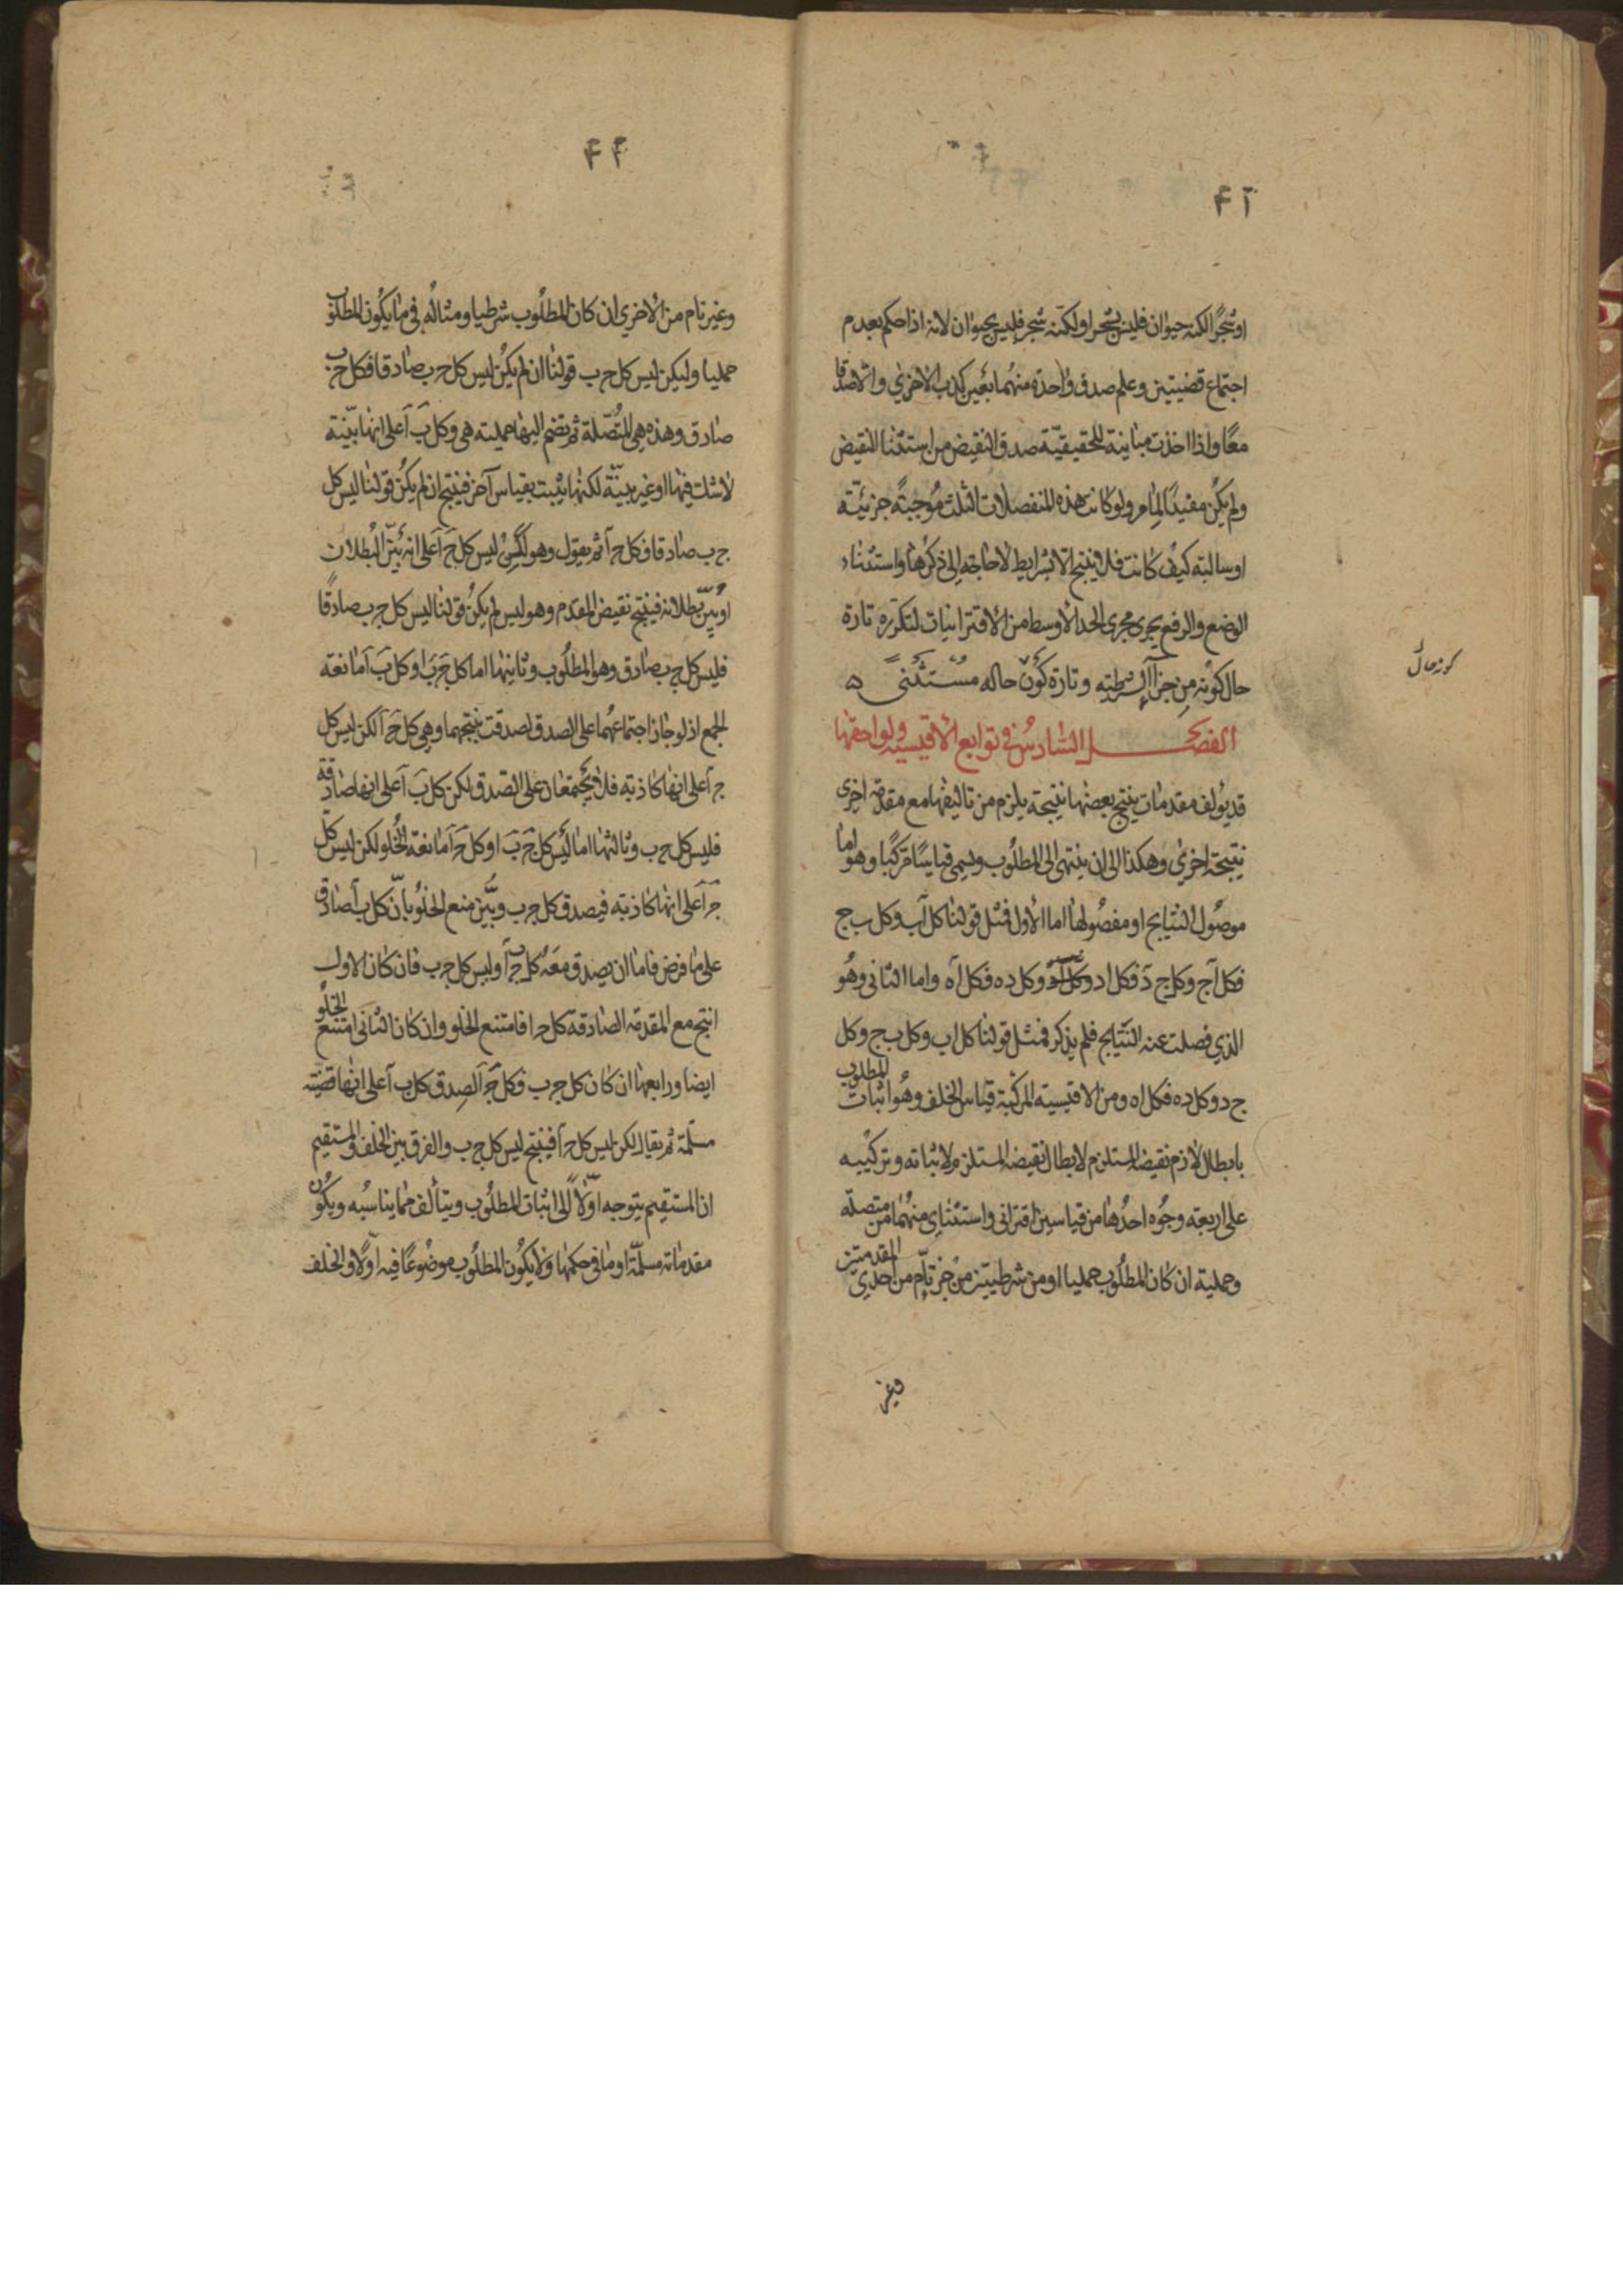 ٤١
او شجرًا لكنه حيوان فليس بشجر او لكنه شجر فليس بحيوان لانه اذا حكم بعدم
اجتماع قضيتين وعلم صدق واحدة منهما بعين كذب الاخرى والا صدقا
معًا واذا اخذت مباينة للحقيقيّة صدق النقيض من استثنا النقيض
ولم يكن مفيدًا لما مر ولو كانت هذه المنفصلات الثلث مُوجبةً جزئيّة
او سالبة كيف كانت فلا ينتج الا بشرايط لا حاجة الى ذكرها واستثناء
الوضع والرفع يجرى مجرى الحد الاوسط من الاقترانيات لتكرّره تارة
حال كونه من جزأ الشرطية وتارة كون حاله مُستثنى ه
كونه حال
الفصل السّادسُ في توابع الاقيسية ولواحقها
قد يؤلف مقدمات ينتج بعضها نتيجة يلزم من تاليفها مع مقدمة اخرى
نتيجة اخرى وهكذا الى ان ينتهى الى المطلوب ويسمى قياسًا مركبًا وهو اما
موصُول النتايج او مفصُولها اما الاول فمثل قولنا كل آب وكل ب ج
فكل آج وكل ج دَ فكل اد وكل ده فكل آه واما الثانى وهُو
الذي فصلت عنه النتايج فلم يذكر فمثل قولنا كل اب وكل ب ج وكل
ج د وكل ده فكل اه ومن الاقيسية المركبة قياس الخلف وهُو اثبات المطلوب
بابطال لازم نقيضه المستلزم لابطال نقيضه المستلزم لاثباته وتركيبه
على اربعة وجُوه احدُها من قياسين اقترانى واستثناى منهُما من متصلة
وحملية ان كان المطلُوب حمليا او من شرطيتين من جز تام من احدى المقدمتين
وغير
٤٢
وغير تام من الاخرى ان كان المطلُوب شرطيا ومثاله في ما يكُون المطلوب
حمليا وليكن ليس كل ج ب قولنا ان لم يكن ليس كل ج ب صادقا فكل ج ب
صادق وهذه هى المتُصّلة ثم تضم اليها حملية هى وكل بَ آ على انها بيّنة
لا شك فيها او غير بيّنة لكنها يثبت بقياس آخر فينتج ان لم يكُن قولنا ليس كل
ج ب صادقا فكل ج آ ثم يقول وهو لكن ليس كل ج آ على انه بيّن البطلان
او بيّن بطلانه فينتج نقيض المقدم وهو ليس لم يكن قولنا ليس كل ج ب صادقًا
فليس كل ج ب صادق وهو المطلُوب وثانيها اما كل جَ بَ او كل بَ آ مانعة
الجمع اذ لو جاز اجتماعهُما على الصدق لصدقت نتيجتهما وهى كل جَ آ لكن ليس كل
ج آ على انها كاذبة فلا يجتمعان على الصدق لكن كل بَ آ على انها صادقة
فليس كل ج ب وثالثها اما ليس كل جَ بَ او كل جَ آ مانعة الخلو لكن ليس كل
جَ آ على انها كاذبة فيصدق كل ج ب وبيّن منع الخلُو بانّ كل ب آ صادق
على ما فرض فاما ان يصدق معَه كل ج ب أو ليس كل ج ب فان كان الاول
انتج مع المقدمة الصادقة كل ج ا فامتنع الخلو وان كان الثانى امتنع الخلُو
ايضا ورابعها ان كان كل ج ب فكل جَ آ لصِدق كل ب آ على انها قضية
مسلمة ثم يقال لكن ليس كل ج آ فينتج ليس كل ج ب والفرق بين الخلف والمستقيم
ان المستقيم يتوجه اوّلاً الى اثبات المطلُوب ويتألف مما يناسُبه ويكُون
مقدماته مسلّمة او ما في حكمها ولا يكون المطلوب موضُوعًا فيه اولا والخلف